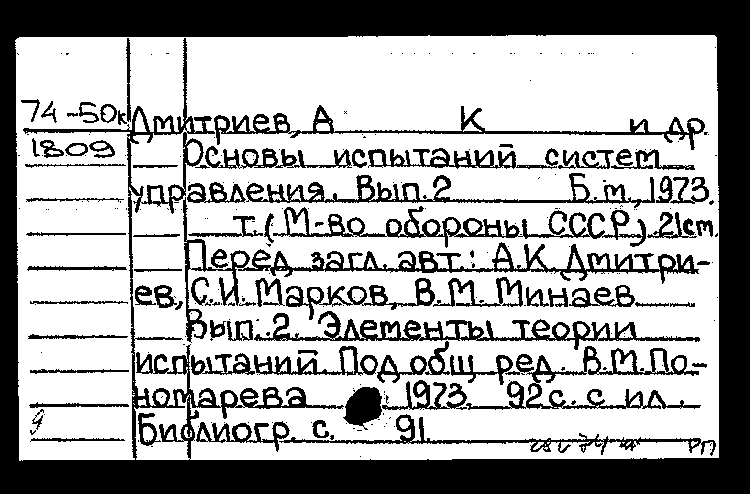 74-50к Дмитриев, А К и др.
1809 Основы испытаний систем
управления. Вып.2 Б.м, 1973.
т. ( М-во обороны СССР). 21см
Перед загл. авт.: А.К. Дмитри-
ев, С.И. Марков, В.М. Минаев
Вып. 2. Элементы теории
испытаний. Под общ ред. В.М. По-
номарева 1973. 92с. с ил.
9 Библиогр. с. 91.
РП